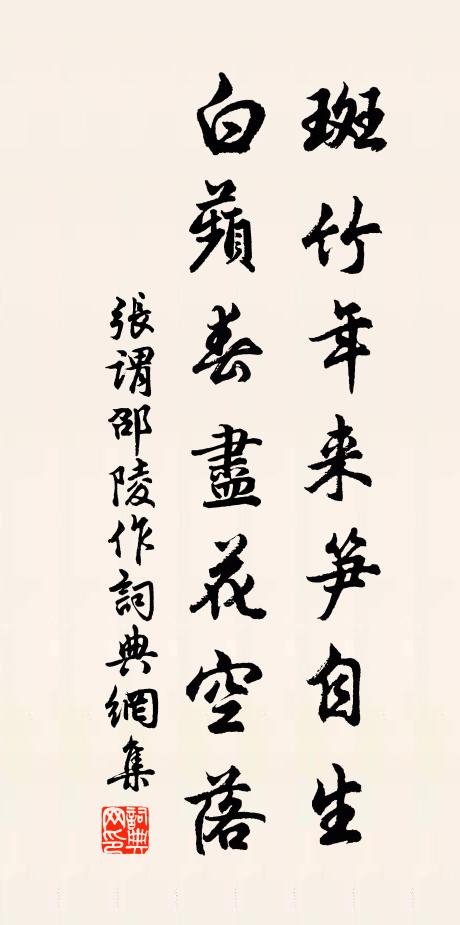 斑竹年来笋自生
白蘋春盡花空落
張謂邵陵作詞典網集
詞典網印